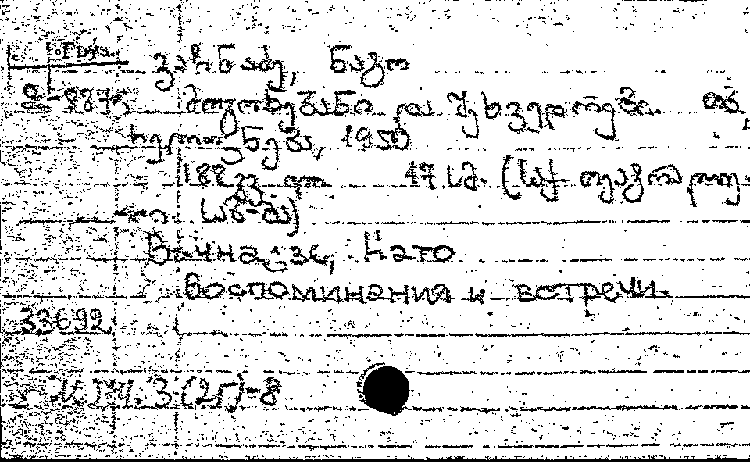 ვაჩნაძე, ნატო
მოგონებანი და შეხვედრები. თბ.,
ხელოვნება, 1950
188 გვ. 17 სმ. (საქ. თეატრალური
საზ-ბა)
Вачнадзе, Нато
Воспоминания и встречи.
33692